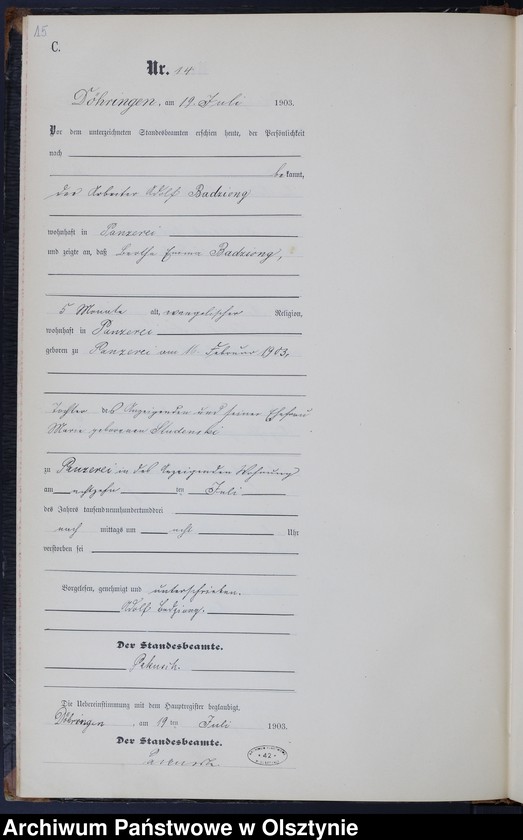 15
C.
Nr. 14
Döhringen, am 19 Juli 1903.
Vor dem unterzeichneten Standesbeamten erschien heute, der Persönlichkeit
nach
bekannt,
der Arbeiter Adolf Badziong
wohnhaft in Panzerei
und zeigte an, daß Bertha Emma Badziong,
5 Monate alt, evangelischer Religion,
wohnhaft in Panzerei
geboren zu Panzerei am Februar 1903,
Tochter des Anzeigenden und seiner Ehefrau
Marie geborenen
zu Panzerei in des Anzeigenden Wohnung
am achtzehn ten Juli
des Jahres tausendneunhundertunddrei
nach mittags um acht Uhr
verstorben sei
Vorgelesen, genehmigt und unterschrieben.
Adolf Badziong.
Der Standesbeamte.
Die Uebereinstimmung mit dem Hauptregister beglaubigt.
Döhringen, am 19 ten Juli 1903.
Der Standesbeamte.
42
Archiwum Państwowe w Olsztynie